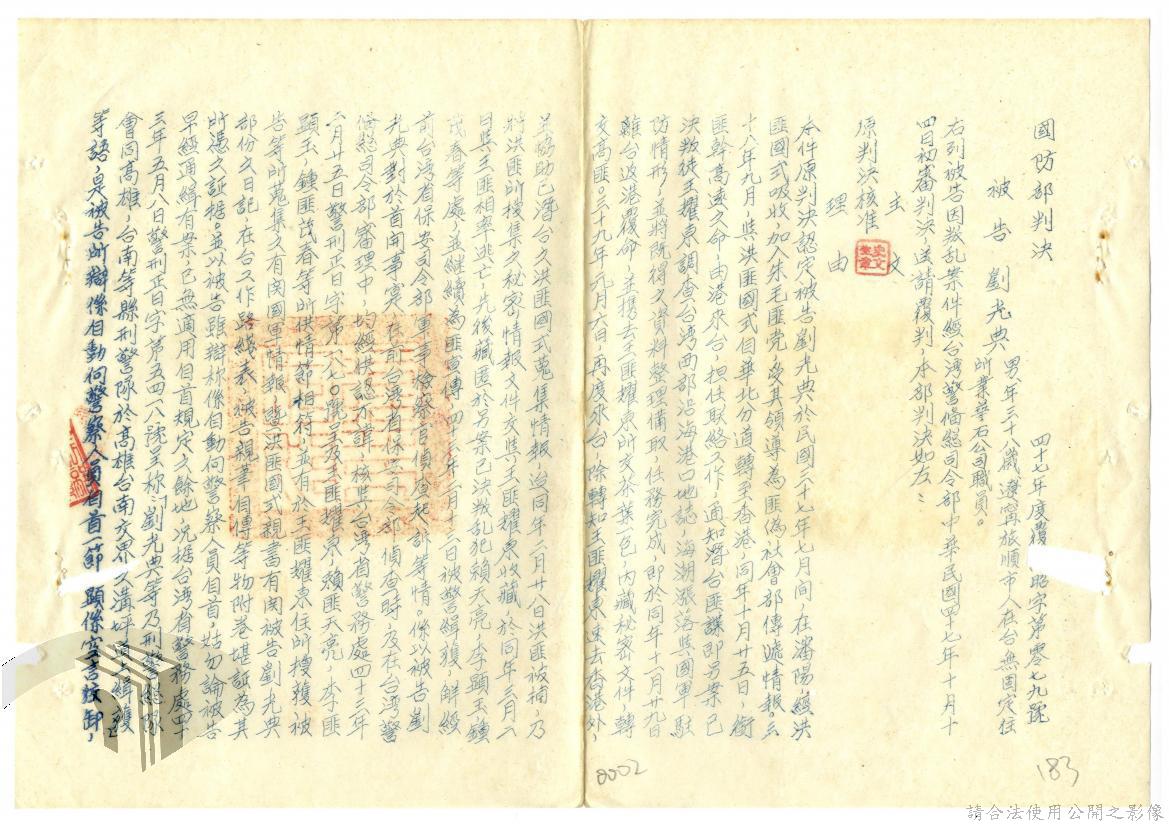 國防部判決
四十七年度覆 昭字第零七九號
被告 劉光典 男年三十八歲遼寧旅順市人在台無固定住
所業華石公司職員。
右列被告因叛乱案件經台湾警備總司令部中華民國四十七年十月十
四日初審判決,送請覆判,本部判決如左:
主文
原判決核准
理由
本件原判決認定被告劉光典於民國三十七年七月間,在瀋陽經洪
匪國式吸收,加入朱毛匪党,受其領導為匪偽社會部傳遞情報。三
十八年九月,與洪匪國式自華北分道轉至香港,同年十月廿五日,銜
匪幹高遠之命,由港來台,担任联絡工作,通知潛台匪諜即另案已
決叛徒王耀東調查台湾西部沿海港口地誌,海潮漲落與國軍駐
防情形,並將既得之資料整理備取,任務完成即於同年十一月廿九日
離台返港覆命,並携去王匪耀東所交茶葉一包,內藏秘密文件,轉
交高匪。三十九年 元月六日,再度來台,除轉知王匪耀東速去香港外,
並協助已潛台之洪匪國式蒐集情報,迨同年二月廿八日洪匪被捕,乃
將洪匪所搜集之秘密情報文件交與王匪耀東收藏,於同年三月二
日與王匪相率逃亡,先後藏匿於另案已決叛乱犯賴天亮,李顯玉鍾
茂春等處,並継續為匪宣傳,四 年二月 三日被警緝獲,解經
前台湾省保安司令部軍事檢察官偵查起訴等情。係以被告劉
光典對於首開事實,在前台湾省保安司令部 偵查時,及在台湾警
備總司令部審理中,均經供認不諱,核與台湾省警務處四十三年
二月廿五日警刑正日字第一八七〇號呈及王匪耀東,賴匪天亮,李匪
顯玉,鍾匪茂春等所供情節相符,並有於王匪耀東住所搜獲被
告等所蒐集之有関國軍情報,暨洪匪國式親書有関被告劉光典
部份之日記,在台工作路线表,被告親筆自傳等物附卷堪証為其
所憑之証据。並以被告雖辯称係自動向警察人員自首,姑勿論被告
早經通緝有案,已無適用自首規定之餘地,况据台湾省警務處四十
三年五月八日警刑正日字第五四八號呈称「劉光典等乃刑警總隊
會同高雄,台南等縣刑警隊於高雄台南交界之溝坪 緝獲
等語,是被告所辯係自動向警察人員自首一節,顯係空言諉卸,
0002
183
請合法使用公開之影像